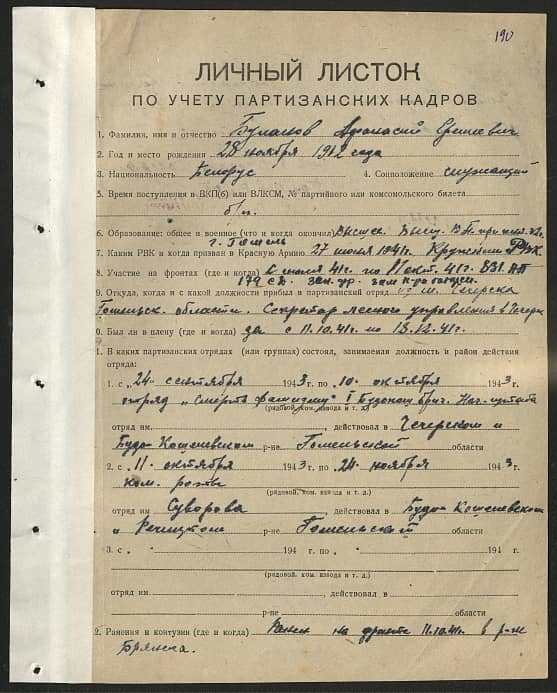 190
ЛИЧНЫЙ ЛИСТОК
ПО УЧЕТУ ПАРТИЗАНСКИХ КАДРОВ
1. Фамилия, имя и отчество Афанасий
2. Год и место рождения 28 ноября 1912 года
3. Национальность Белорус 4. Соцположение служащий
5. Время поступления в ВКП(б) или ВЛКСМ, № партийного или комсомольского билета
б/п.
6. Образование: общее и военное (что и когда окончил) Высшее.
г. Гомель
7. Каким РВК и когда призван в Красную Армию 27 июня 1941г. РВК.
8. Участие на фронтах (где и когда) с июля 41г. по 11 окт. 41г.
179 с.д.
9. Откуда, когда и с какой должности прибыл в партизанский отряд Чечерска
Гомельск. области. Секретарь лесного управления в
0. Был ли в плену (где и когда) да с 11.10.41г. по
1. В каких партизанских отрядах (или группах) состоял, занимаемая должность и район действия
отряда:
1. с „24" сентября 1943 г. по „10" октября 1943 г.
отряд „Смерть фашизму" I Нач. штаба
(рядовой, ком. взвода и т. д.)
отряд им. , действовал в Чечерском и
Буда-Кошелевском р-не Гомельской области
2. с „11" октября 1943 г. по „24" ноября 1943 г.
ком. роты
(рядовой, ком. взвода и т. д.)
отряд им. Суворова действовал в Буда-Кошелевском
и р-не Гомельской области
3. с „ " 194 г. по „ " 194 г.
(рядовой, ком. взвода и т. д.)
отряд им. , действовал в
р-не области
2. Ранения и контузии (где и когда) Ранен на фронте 11.10.41г. в р-не
Брянска.